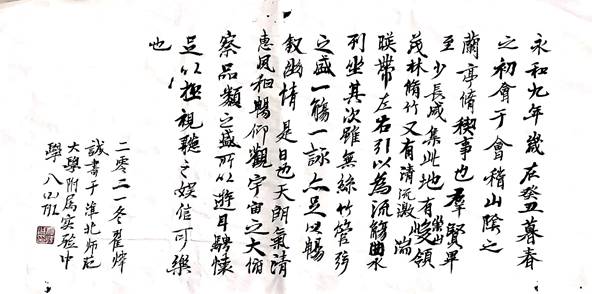 永和九年歲在癸丑暮春
之初會于會稽山陰之
蘭亭脩稧事也羣賢畢
至少長咸集此地有崇山峻領
茂林脩竹又有清流激湍
暎帶左右引以為流觴曲水
列坐其次雖無絲竹管弦
之盛一觴一詠亦足以暢
敘幽情是日也天朗氣清
惠風和暢仰觀宇宙之大俯
察品類之盛所以遊目騁懷
足以極視聽之娛信可樂
也
二零二一冬翟烨
誠書于淮北师范
大學附属实验中
學八